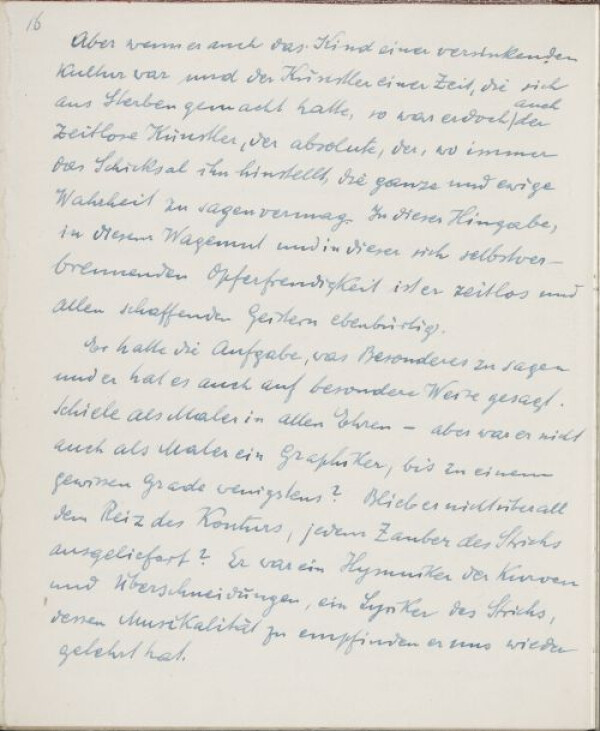 16
Aber wenn er auch das Kind einer versinkenden
Kultur war und der Künstler einer Zeit, die sich
ans Sterben gemacht hatte, so war er doch auch der
zeitlose Künstler, der absolute, der, wo immer
das Schicksal ihn hinstellt, die ganze und ewige
Wahrheit zu sagen vermag. In dieser Hingabe,
in diesem Wagemut und in dieser sich selbstver-
brennenden Opferfreudigkeit ist er zeitlos und
allen schaffenden Geistern ebenbürtig.
Er hatte die Aufgabe, was Besonderes zu sagen
und er hat es auch auf besondere Weise gesagt.
Schiele als Maler in allen Ehren – aber war er nicht
auch als Maler ein Graphiker, bis zu einem
gewissen Grade wenigstens? Blieb er nicht überall
dem Reiz des Konturs, jedem Zauber des Strichs
ausgeliefert? Er war ein Hymniker der Kurven
und Überschneidungen, ein Lyriker des Strichs,
dessen Musikalität zu empfinden er uns wieder
gelehrt hat.